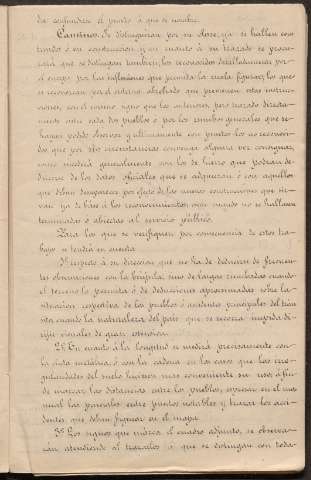 da confundirse el punto á que se nombre.
Caminos. Se distinguirán por su clase, ya se hallen cons-
truidos ó en construccion y en cuanto á su trazado se procu-
rará que se distingan tambien, los reconocidos detalladamente por
el cuerpo por las inflexiones que permita la escala figurar, los que
se reconozcan por el sistema abreviado que previenen estas instruccio-
nes, con el mismo signo que los anteriores pero trazado directa-
mente entre cada dos pueblos ó por los rumbos generales que se
hayan podido observar y ultimamente con puntos los no reconoci-
dos que por sus circunstancias convenga alguna vez consignar,
como sucederá generalmente con los de hierro que podrán de-
ducirse de los datos oficiales que se adquieran ó con aquellos
que deban desaparecer por efecto de las nuevas construcciones que sir-
van ya de base á los reconocimientos aun cuando no se hallasen
terminadas ó abiertas al servicio público.
Para los que se verifiquen por consecuencia de estos tra-
bajos se tendrá en cuenta
1º Respecto á su direccion que no ha de deducirse de frecuen-
tes observaciones con la brújula, sino de largas enfiladas cuando
el terreno lo permita ó de deducciones aproximadas sobre la
situacion respectiva de los pueblos ó accidentes principales del trán-
sito cuando la naturaleza del pais que se recorra impida diri-
gir visuales de gran estension.
2º En cuanto á la longitud se medirá precisamente con
la cinta metálica ó con la cadena en los casos que las irre-
gularidades del suelo hiciesen mas conveniente su uso á fin
de marcar las distancias entre los pueblos, espresar en el ma-
nual las parciales entre puntos notables y trazar los acci-
dentes que deban figurar en el mapa.
3º Los signos que marca el cuadro adjunto, se observa-
rán atendiendo al trazarlos á que se distingan con toda